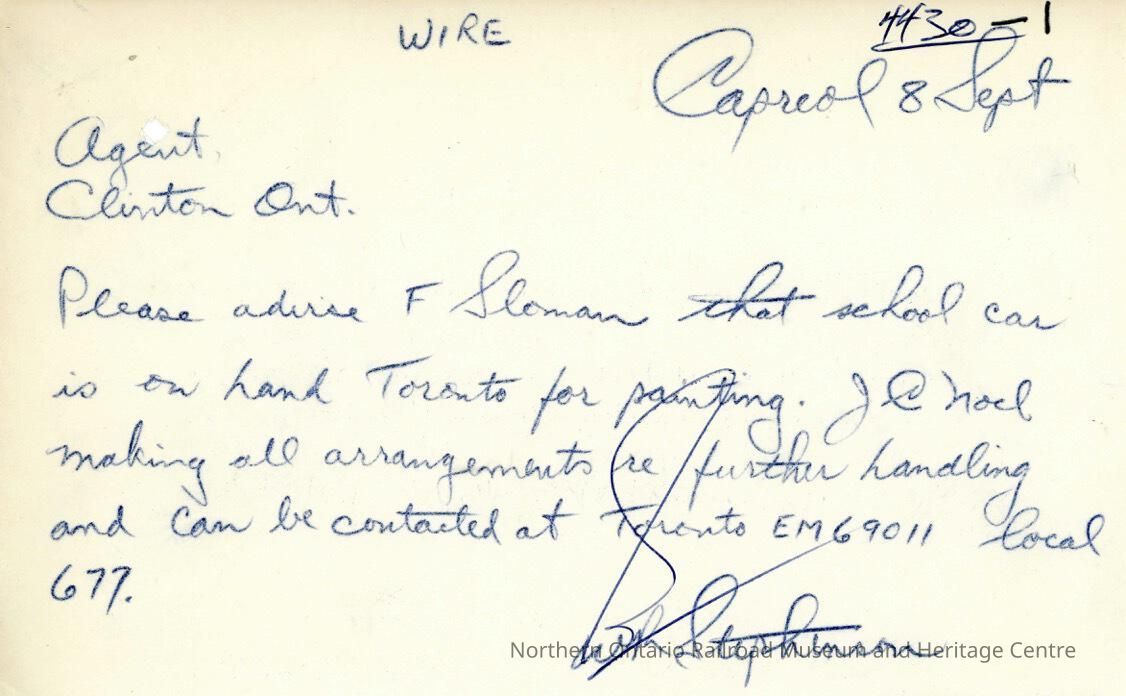 WIRE
4430-1
Capreol 8 Sept
Agent,
Clinton Ont.
Please advise F Sloman that school car
is on hand Toronto for painting. J C Noel
making all arrangements re further handling
and can be contacted at Toronto EM69011 local
677.
Stephenson
Northern Ontario Railroad Museum and Heritage Centre